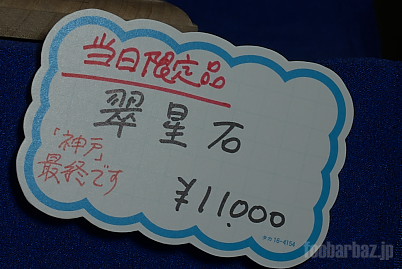 当日限定品
翠星石
「神戸」
最終です
¥11.000
タカ 16-4154
foobarbaz.jp